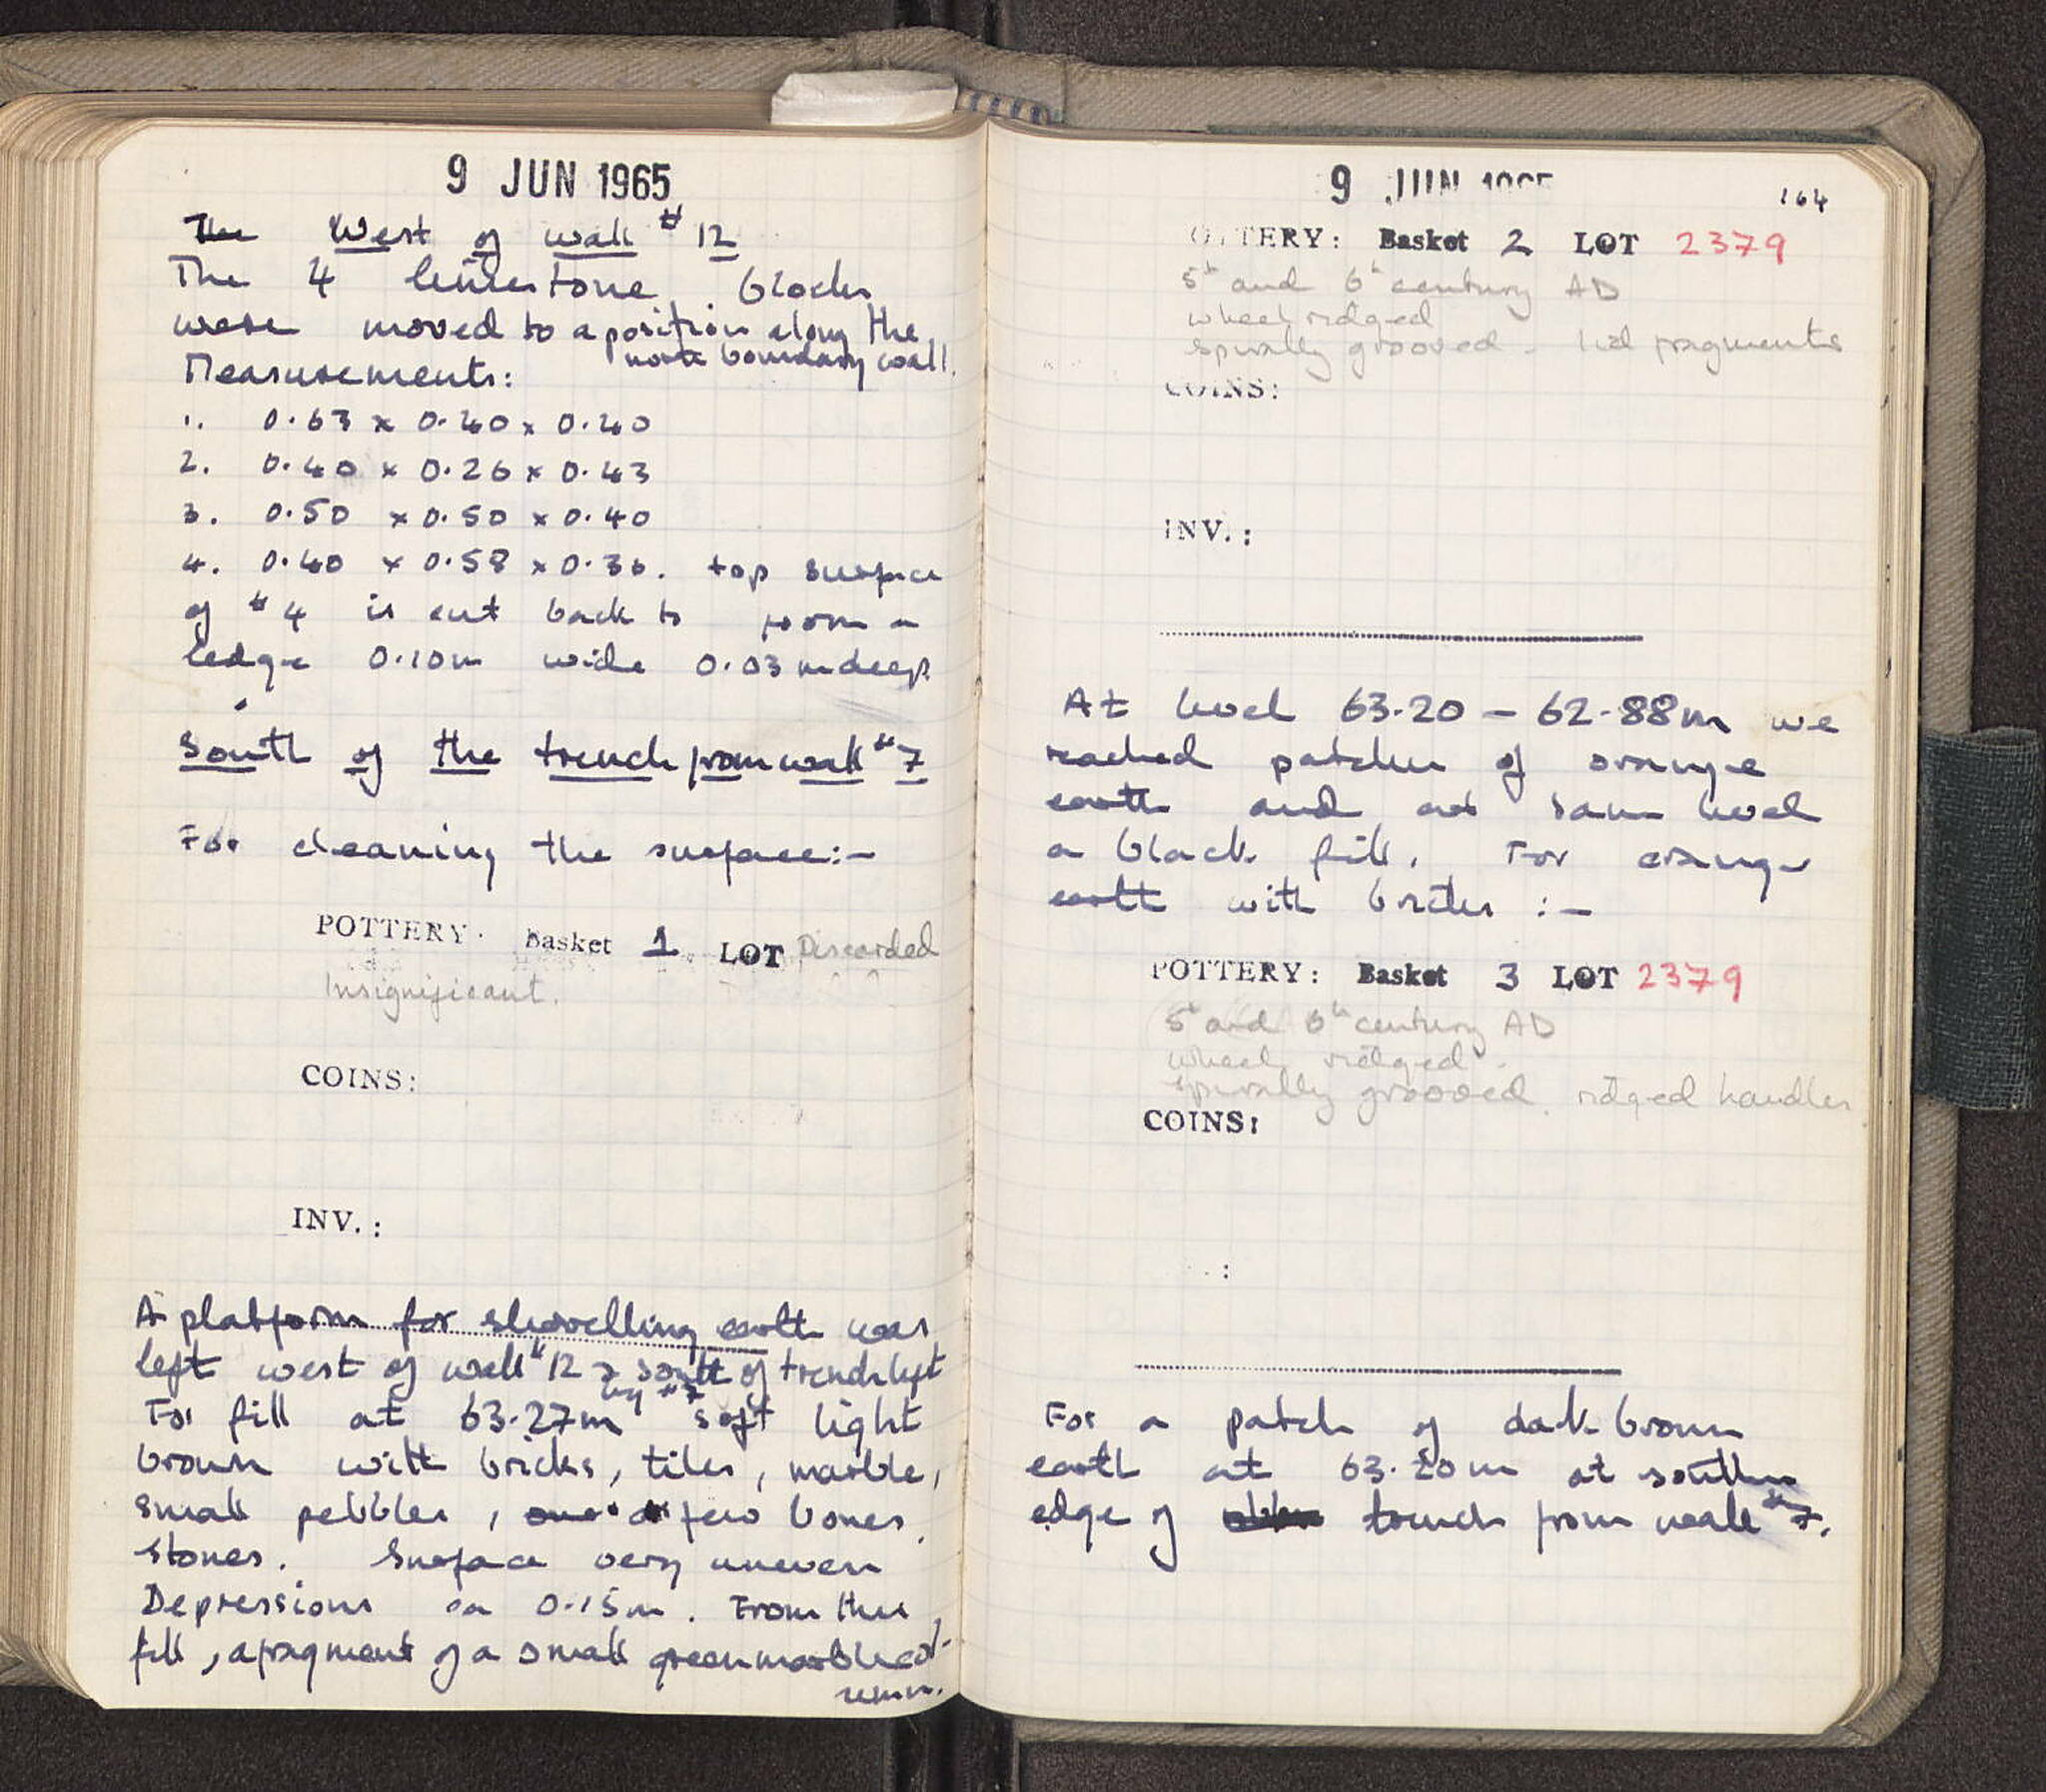 9 JUN 1965
The West of wall #12
The 4 limestone blocks
were moved to a position along the
north boundary wall.
Measurements:
1. 0.63 x 0.40 x 0.40
2. 0.40 x 0.26 x 0.43
3. 0.50 x 0.50 x 0.40
4. 0.40 x 0.58 x 0.36. top surface
of #4 is cut back to form a
ledge 0.10m wide 0.03m deep.
South of the trench from wall #7
For cleaning the surface:-
POTTERY: Basket 1 LOT Discarded
Insignificant.
COINS:
INV.:
A platform for shovelling earth was
left west of wall #12 & south of trench left
by #7
For fill at 63.27m soft light
brown with bricks, tiles, marble,
small pebbles, one a few bones,
stones. Surface very uneven
Depressions ca 0.15m. From this
fill, a fragment of a small green marble col-
umn.
9 JUN 1965
164
POTTERY: Basket 2 LOT 2379
5th and 6th century AD
wheel ridged
spirally grooved - lid fragments
COINS:
INV.:
At level 63.20 - 62.88m we
reached patches of orange
earth and at same level
a black fill. For orange
earth with bricks :-
POTTERY: Basket 3 LOT 2379
5th and 6th century AD
wheel ridged -
spirally grooved. ridged handles
COINS:
:
For a patch of dark brown
earth at 63.20m at southern
edge of trench from wall #7.